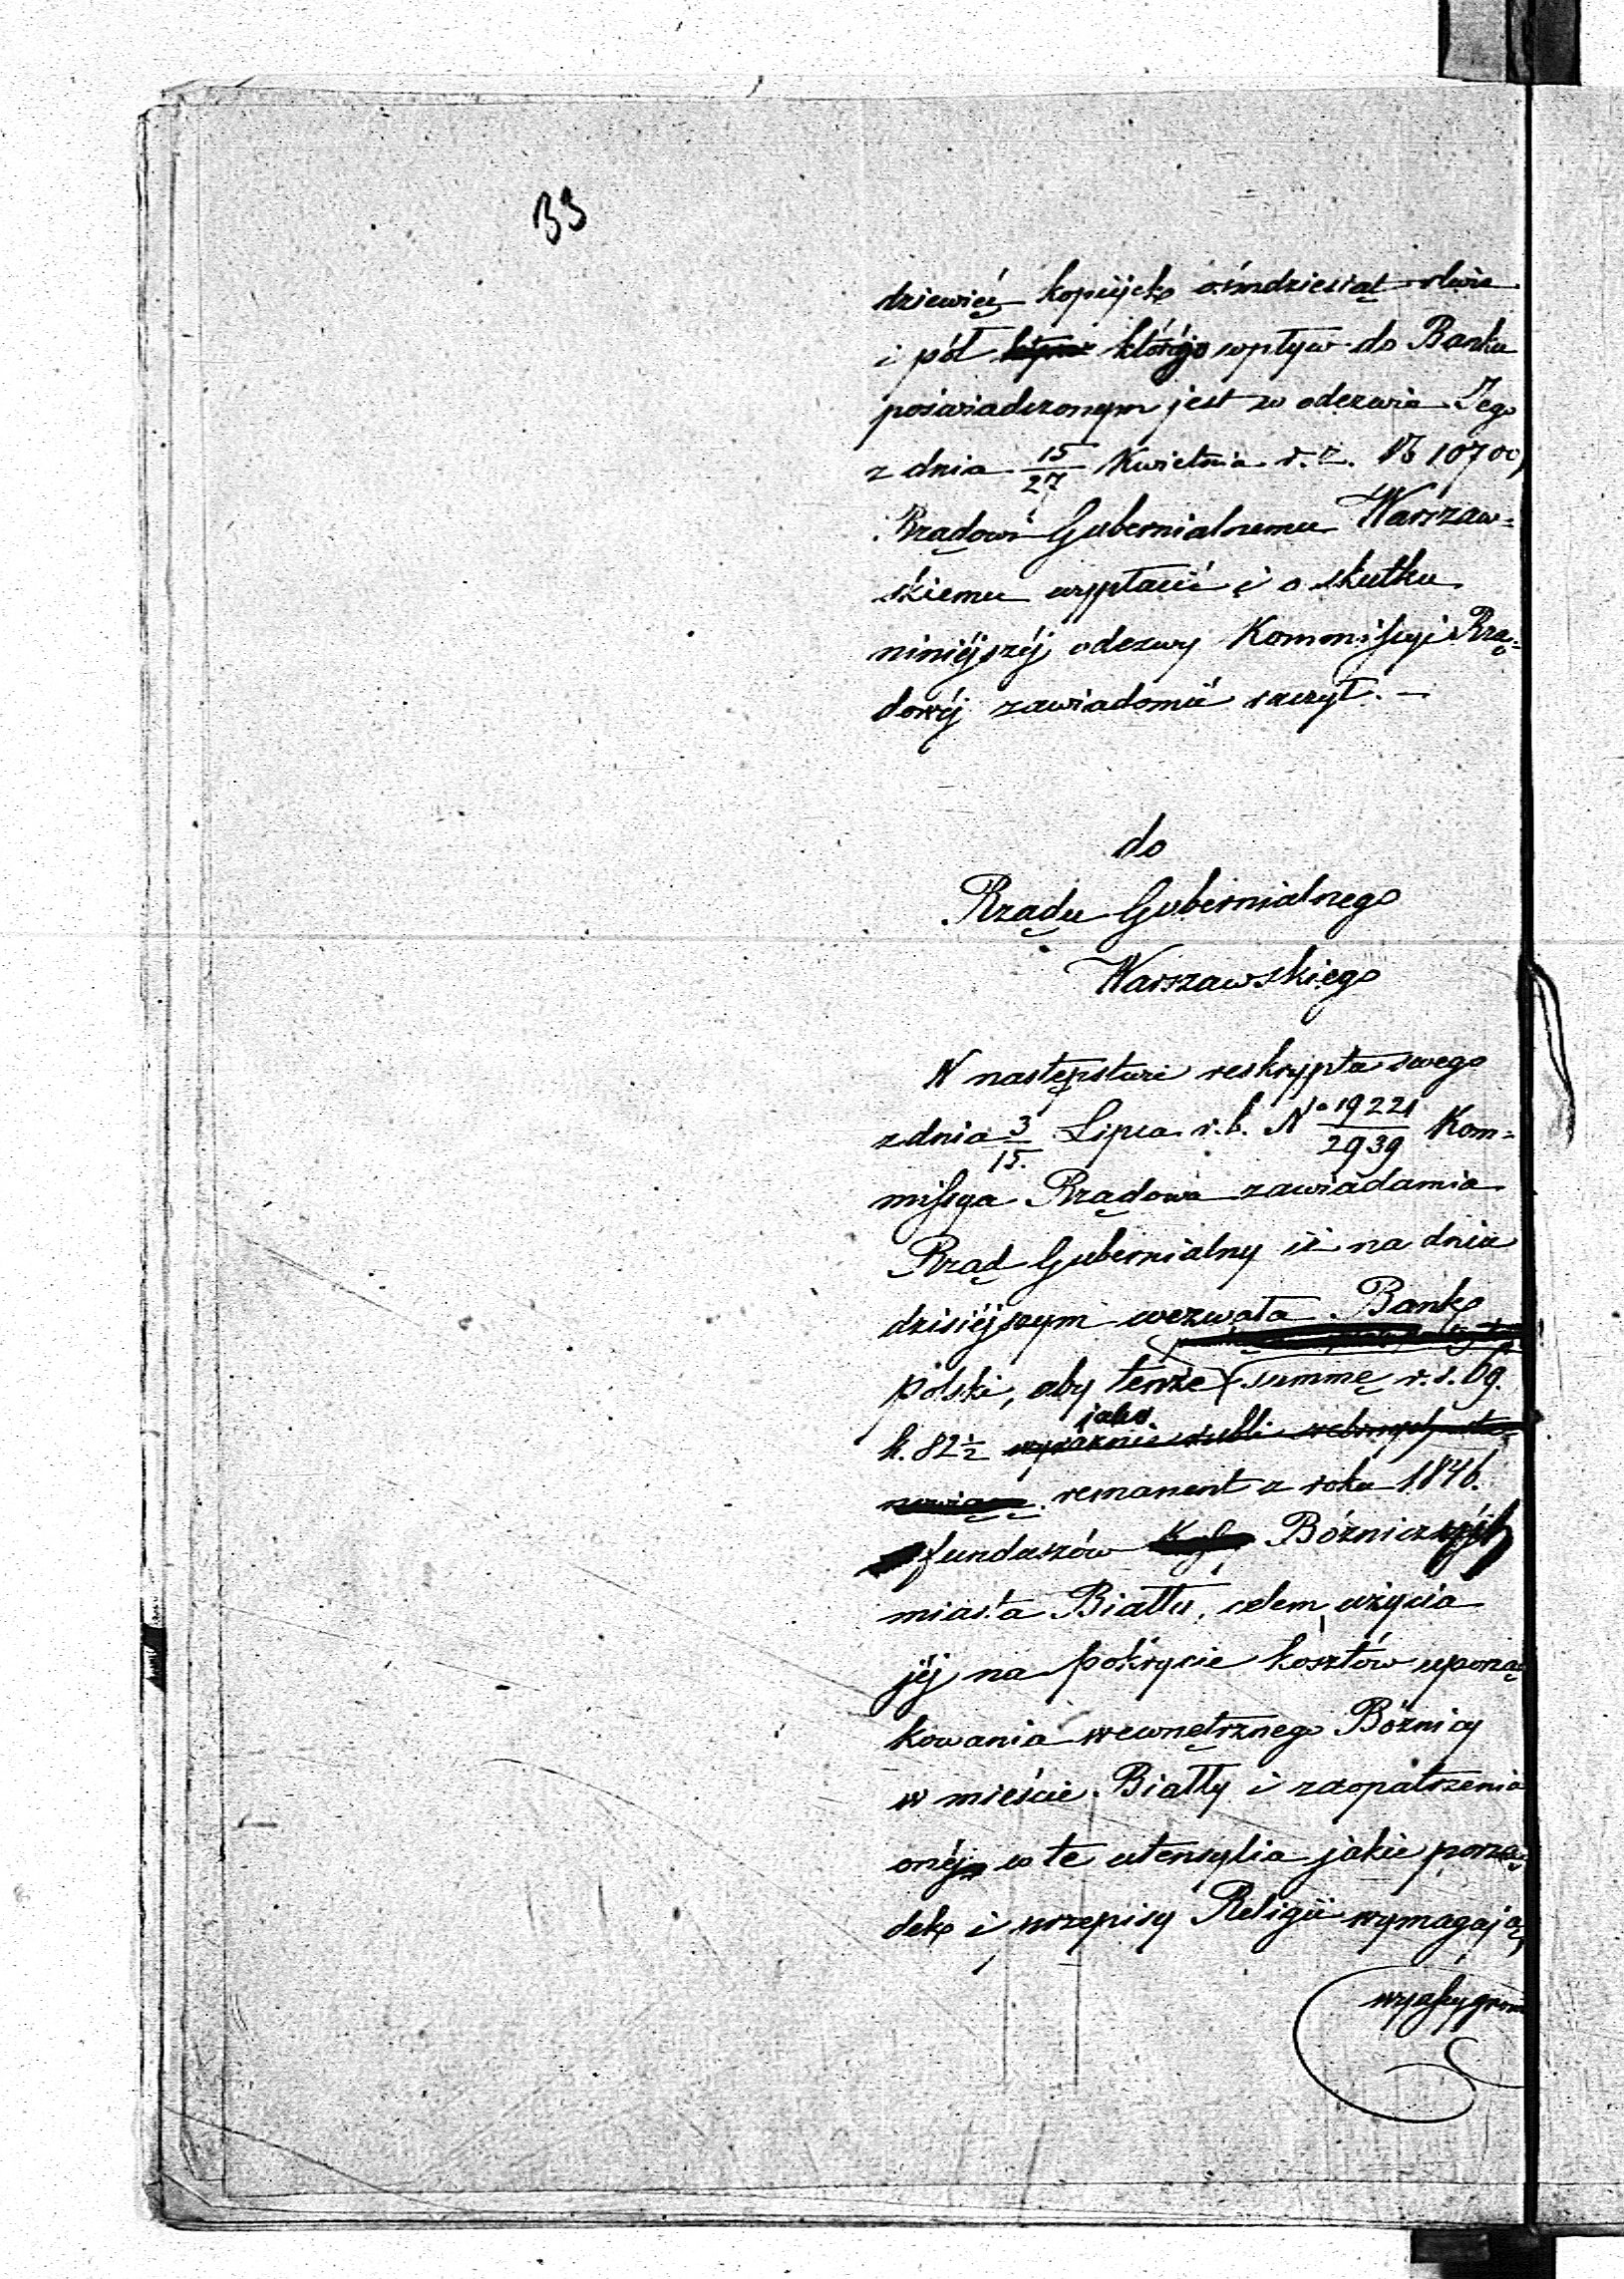 33
dziewięć kopiejek ośmdziesiąt dwie
i pół którego wpływ do Banku
poświadczonym jest w odezwie Jego
z dnia 15/27 Kwietnia r. z. № 10700,
Rządowi Gubernialnemu Warszaw=
skiemu wypłacić i o skutku
niniéjszéj odezwy Kommissyi Rzą=
dowéj zawiadomić raczył. —
do
Rządu Gubernialnego
Warszawskiego
W następstwie reskryptu swego
z dnia 3/15. Lipca r. b. No 19221/2939 Kom=
missya Rządowa zawiadamia
Rząd Gubernialny iż na dniu
dzisiéjszym wezwała Bank
polski, aby tenże summę r. s. 69.
k. 82½ wyraźnie rubli srebrnych
jako
remanent z roku 1846.
funduszów Bóżniczych
miasta Biatły, celem użycia
jéj na pokrycie kosztów uporząd
kowania wewnętrznego Bóżnicy
w mieście Biatły i zaopatrzenia
onéj w te utensylia jakie porzą
dek i przepisy Religii wymagają,
wyassygno